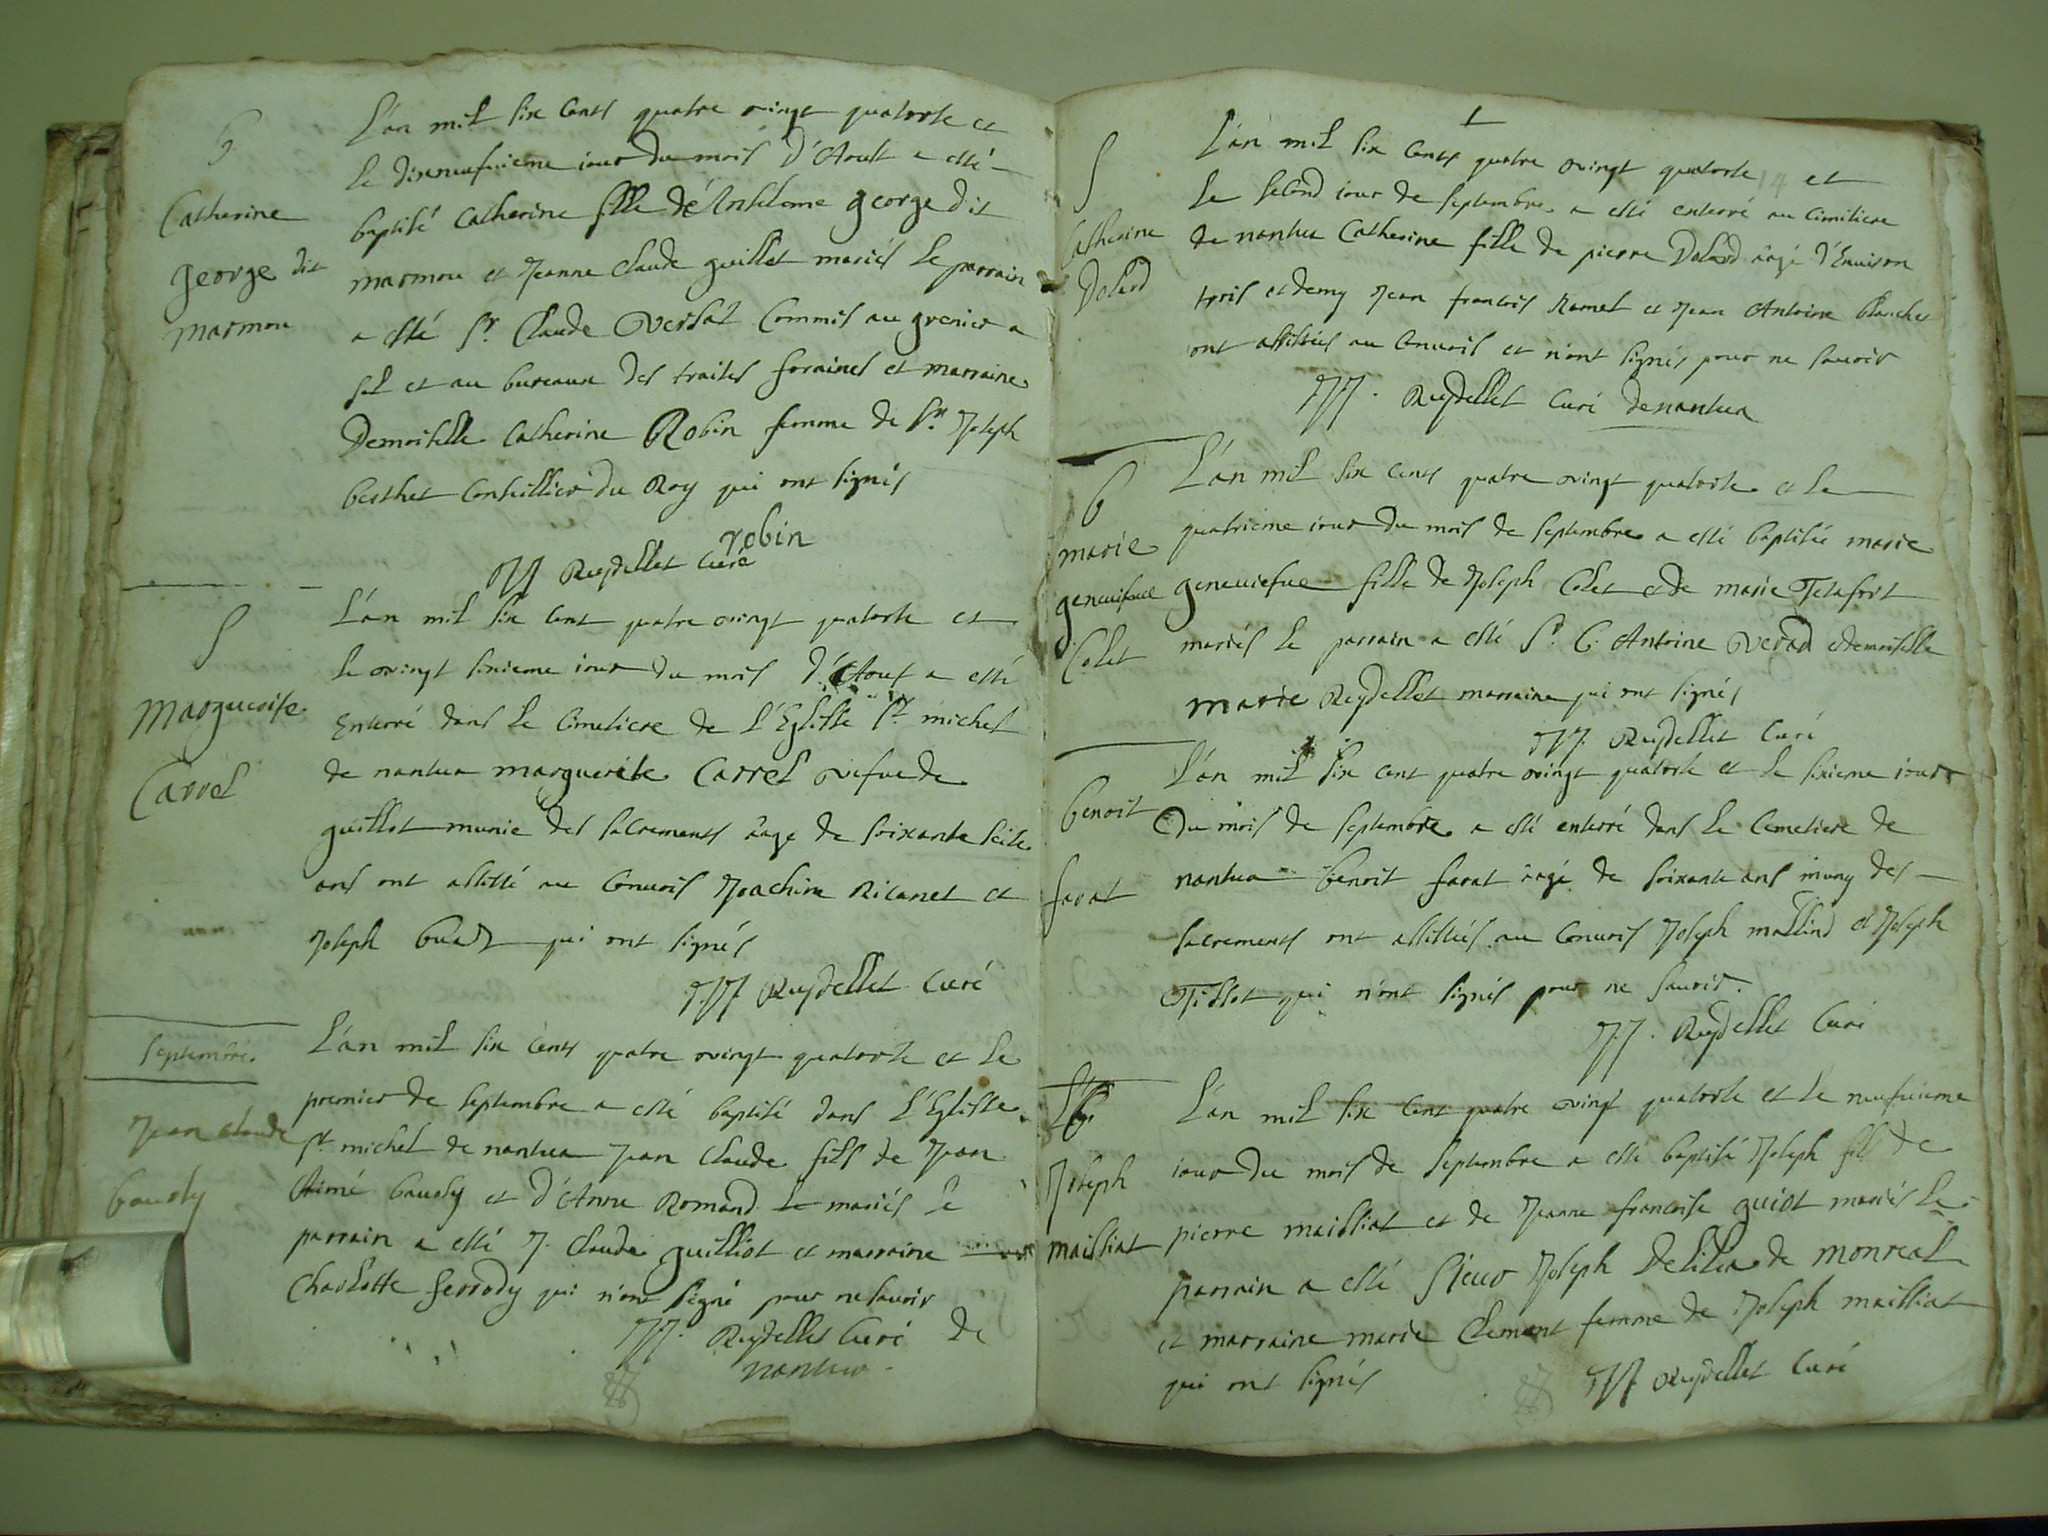 b
Catherine
george dit
marmou
L'an mil six cents quatre vingt quatorse et
le dixneufuieme iour du mois d'Aoust a esté
baptisé Catherine fille de Anthelome george dit
marmou et Jeanne Claude guillet mariés le parrain
a esté Sr. Claude Versat Commis au grenier a
sel et au bureaux des traites foraines et marraine
Demoiselle Catherine Robin femme de Sr. Joseph
berthet Conseillier du Roy qui ont signés
robin
JJ Reydellet Curé
S
Marguerite
Carrel
L'an mil six cent quatre vingt quatorse et
le vingt sixieme iour du mois d'Aoust a esté
Enterré dans le Cimetiere de l'Eglisse St. michel
de nantua marguerite Carrel vefue de
guillot munie des sacrements âagé de soixante seise
ans ont assisté au Conuois Joachim Ricanet et
Joseph qui ont signés
J.JJ. Reydellet Curé
Septembre.
Jean claude
baudy
L'an mil six cents quatre vingt quatorse et le
premier de septembre a esté baptisé dans l'Eglisse
St. michel de nantua Jean Claude fils de Jean
Aimé baudy et d'Anne Romand mariés le
parrain a esté J. Claude guilliot et marraine
Charlotte ferrody qui n'ont signé pour ne sauoir
JJJ. Reydellet Curé de
nantua.
S
Catherine
Dolard
L'an mil six cents quatre vingt quatorse et
le second iour de septembre a esté enterré au Cimitiere
de nantua Catherine fille de pierre Dolard âagé d'Enuiron
trois et demy Jean francois Ramel et Jean Antoine blanchet
ont assistés au Conuois et n'ont signés pour ne sauoir
JJJ. Reydellet Curé de nantua
b
marie
geneuiefue
Colet
L'an mil six cents quatre vingt quatorse et le
quatrieme iour du mois de septembre a esté baptisée marie
geneuiefue fille de Joseph Colet et de marie Tetafort
mariés le parrain a esté Sr. C. Antoine Verad et demoiselle
marie Reydellet marraine qui ont signés
JJJ. Reydellet Curé
benoit
favat
L'an mil six cent quatre vingt quatorse et le sixieme iour
Du mois de septembre a esté enterré dans le Cemetiere de
nantua benoit favat âagé de soixante ans muny des
sacrements ont assistés au Conuois Joseph massind et Joseph
Tissot qui n'ont signés pour ne sauoir.
J.J. Reydellet Curé
b.
Joseph
maissiat
L'an mil six cent quatre vingt quatorse et le neufuieme
iour du mois de septembre a esté baptisé Joseph fils de
pierre maissiat et de Jeanne francoise guiot mariés le
parrain a esté Sieur Joseph Delilia de monreal
et marraine marie Clement femme de Joseph maissiat
qui ont signés
JJJ. Reydellet Curé